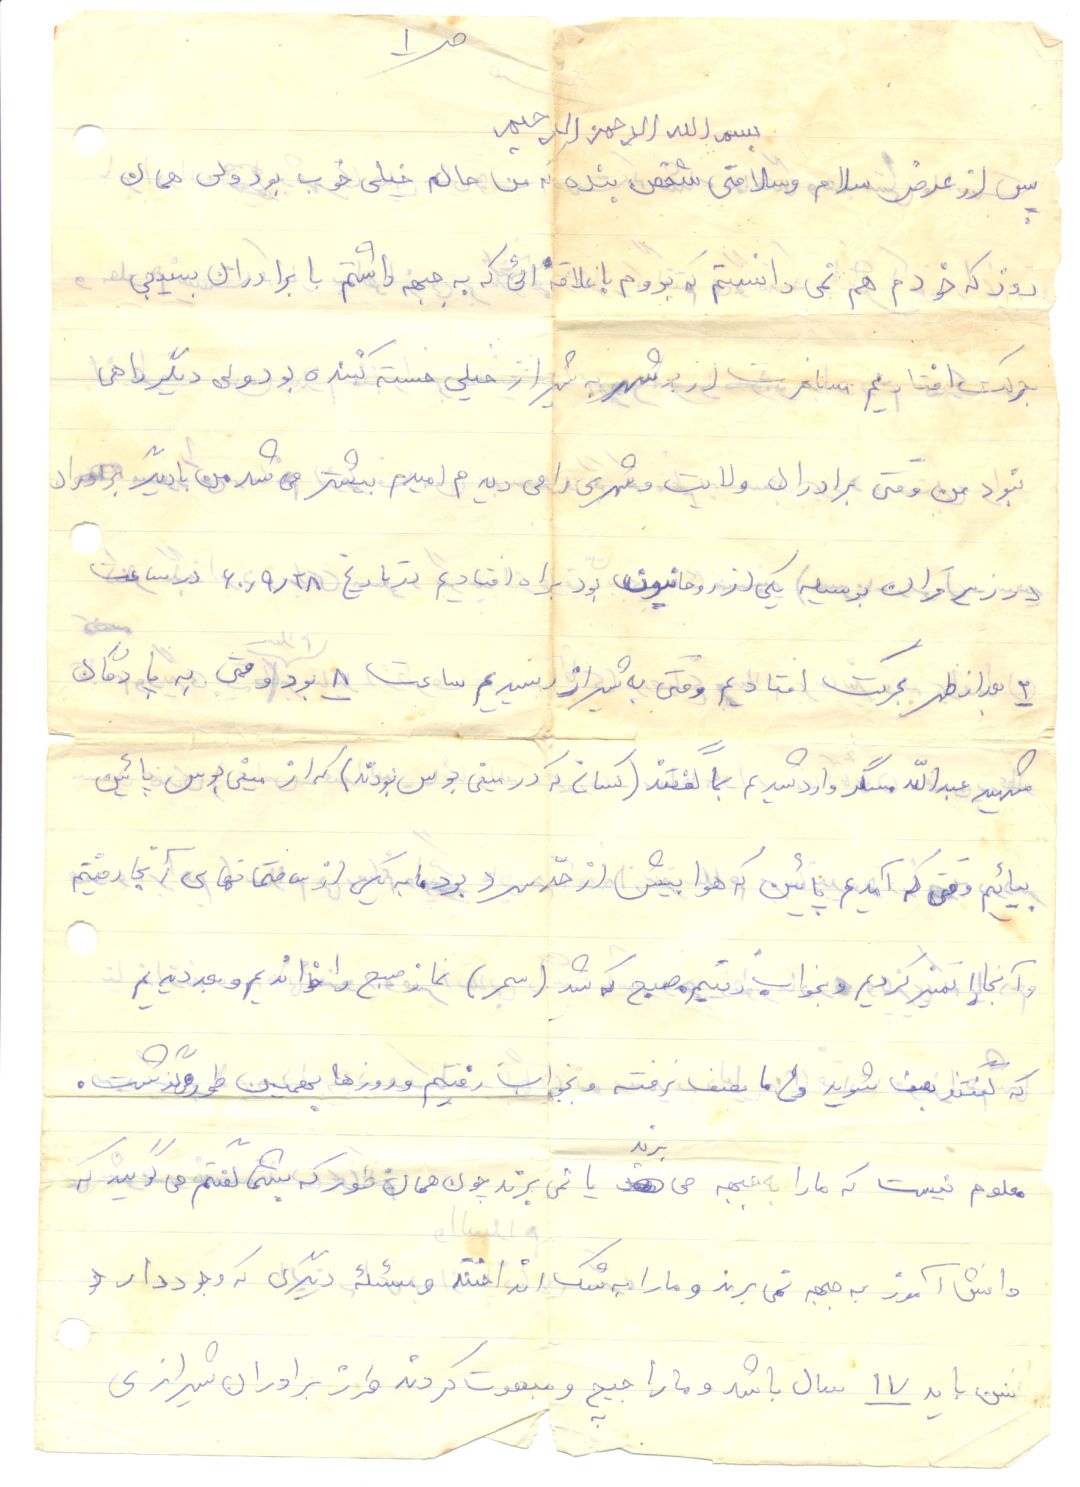 ص ۱
بسم الله الرحمن الرحیم
پس از عرض سلام و سلامتی شخص بنده که من حالم خیلی خوب بود ولی همان
روز که خودم هم نمی دانستم که بروم با علاقه ائی که به جبهه داشتم با برادران بسیجی
بحرکت افتادیم مسافرت از بوشهر به شیراز خیلی خسته کننده بود ولی دیگر راهی
نبود من وقتی برادران ولایت و شهری را می دیدم امیدم بیشتر می شد من با دیگر برادران
در زیر قرآن بوسیله یکی از روحانیون بود براه افتادیم در تاریخ ۶۰٫۹٫۲۸ در ساعت
۲ بعد از ظهر بحرکت افتادیم وقتی به شیراز رسیدیم ساعت ۸ بود وقتی به پادگان
شهید عبدالله مسگر وارد شدیم بما گفتند (کسانی که در مینی بوس بودند) که از مینی بوس پائین
بیائیم وقتی که آمدیم پائین که هوا بیش از حد سرد بود ما به یکی از ساختمانهای آنجا رفتیم
و آنجا را تمیز کردیم و بخواب رفتیم صبح که شد (سحر) نماز صبح را خواندیم و بعد دیدیم
که گفتند بصف شوید ولی ما بصف نرفته و بخواب رفتیم و روزها بهمین طور گذشت.
معلوم نیست که ما را به جبهه می برند یا نمی برند چون همان طور که بشما گفتم می گویند که
دانش آموز به جبهه نمی برند و ما را به شک انداختند و مسئله دیگری که وجود دارد
سن باید ۱۷ سال باشد و ما را گیج و مبهوت کردند برادران شیرازی